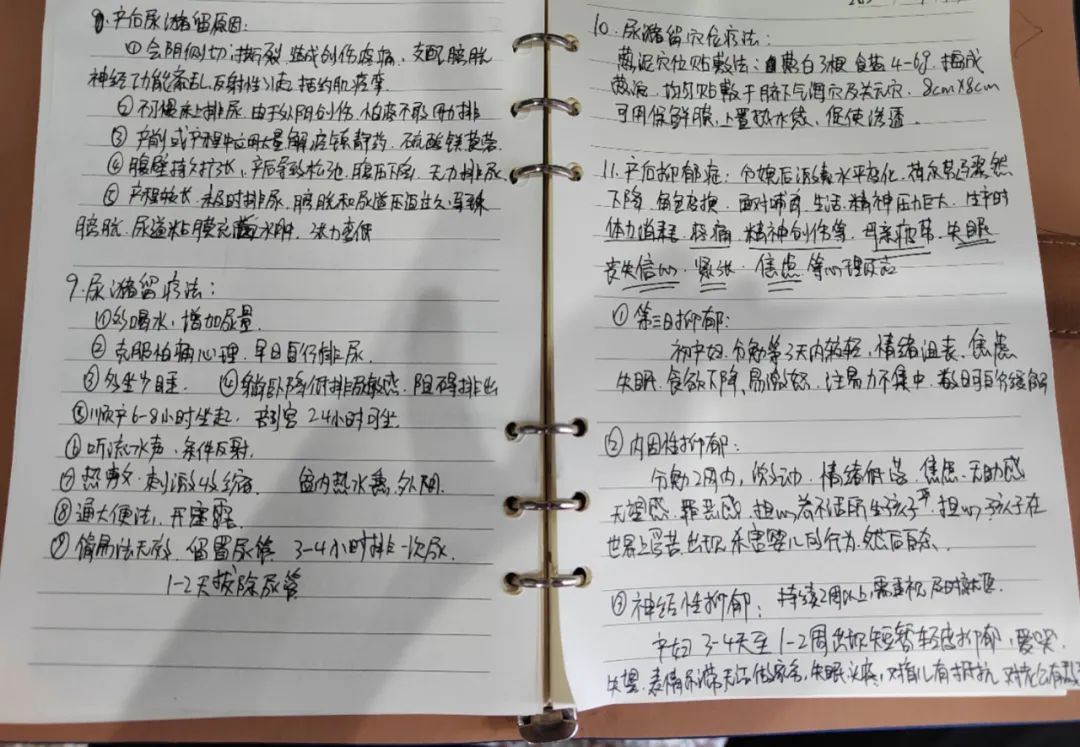 8. 产后尿潴留原因：
① 会阴侧切、撕裂 造成创伤疼痛、支配膀胱
神经功能紊乱反射性引起 括约肌痉挛
② 不习惯床上排尿、由于外阴创伤、怕疼不敢用力排
③ 产前或产程中应用大量解痉镇静药、硫酸镁莨菪
④ 腹壁持久扩张、产后导致松弛、腹压下降、无力排尿
⑤ 产程较长、未及时排尿、膀胱和尿道压迫过久 导致
膀胱、尿道粘膜充血水肿、张力变低
9. 尿潴留疗法：
① 多喝水，增加尿量
② 克服怕痛心理、早日自行排尿.
③ 多坐少睡 ④ 躺卧降低排尿敏感、阻碍排出
⑤ 顺产6-8小时坐起、剖宫 24小时可坐.
⑥ 听流水声、条件反射.
⑦ 热敷、刺激收缩. 盆内热水熏外阴.
⑧ 通大便法，开塞露
⑨ 偏用法无效 留置尿管 3-4小时排一次尿.
1-2天拔除尿管
10. 尿潴留穴位疗法：
葱泥穴位贴敷法：葱白3根 食盐4-6g. 捣成
葱泥、均匀贴敷于脐下气海穴及关元穴、8cm×8cm
可用保鲜膜，上置热水袋、促使渗透.
11. 产后抑郁症：分娩后激素水平变化、荷尔蒙骤然
下降、角色变换、面对哺育、生活、精神压力巨大、生产时
体力消耗、疼痛、精神创伤等、母亲疲劳、失眠
丧失信心、紧张、焦虑、等心理反应
① 第三日抑郁：
初产妇、分娩第3天内较轻、情绪沮丧、焦虑
失眠、食欲下降、易激怒、注意力不集中、数日可自行缓解
② 内因性抑郁：
分娩2周内、激动、情绪低落、焦虑、无助感
无望感、罪恶感、担心养不活所生孩子、担心孩子在
世界上受苦、出现杀害婴儿的行为、然后自杀.
③ 神经性抑郁：持续2周以上，需重视、及时
产妇3-4天至1-2周出现短暂轻度抑郁，爱哭
失望、表情 失眠 对婴儿有抵抗、对老公有